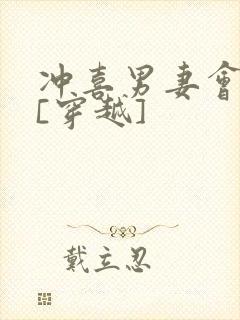 冲喜男妻會
[穿越]
戴立忍